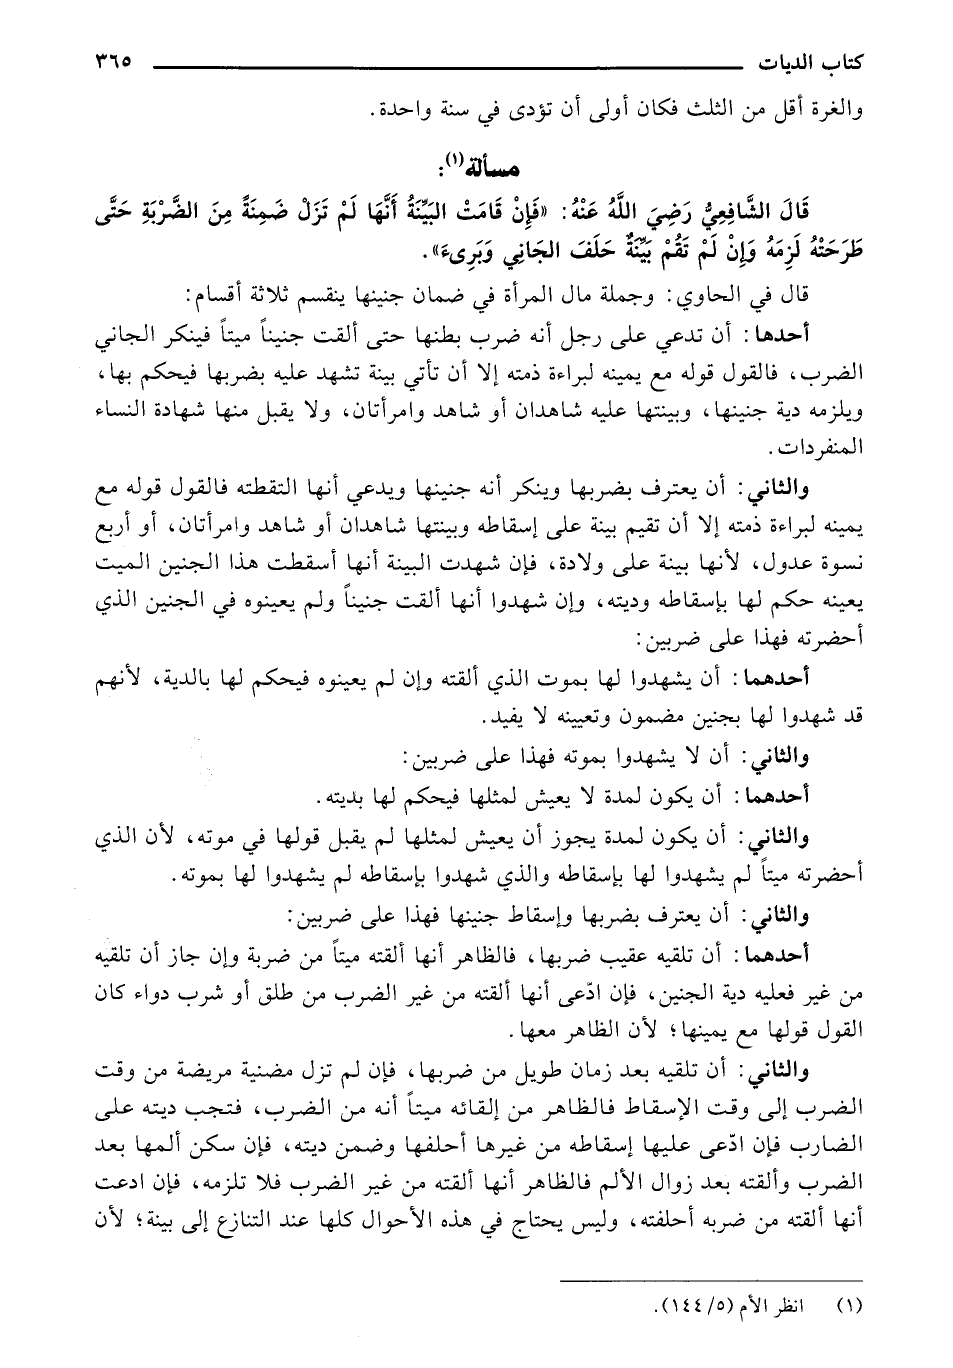 كتاب الديات ٣٦٥
والغرة أقل من الثلث فكان أولى أن تؤدى في سنة واحدة.
مسألة(١):
قَالَ الشَّافِعِيُّ رَضِيَ اللَّهُ عَنْهُ: «فَإِنْ قَامَتْ البَيِّنَةُ أَنَّهَا لَمْ تَزَلْ ضَمِنَةً مِنَ الضَّرْبَةِ حَتَّى
طَرَحَتْهُ لَزِمَهُ وَإِنْ لَمْ تَقُمْ بَيِّنَةٌ حَلَفَ الجَانِي وَبَرِىءَ».
قال في الحاوي: وجملة مال المرأة في ضمان جنينها ينقسم ثلاثة أقسام:
أحدها: أن تدعي على رجل أنه ضرب بطنها حتى ألقت جنيناً ميتاً فينكر الجاني
الضرب، فالقول قوله مع يمينه لبراءة ذمته إلا أن تأتي بينة تشهد عليه بضربها فيحكم بها،
ويلزمه دية جنينها، وبينتها عليه شاهدان أو شاهد وامرأتان، ولا يقبل منها شهادة النساء
المنفردات.
والثاني: أن يعترف بضربها وينكر أنه جنينها ويدعي أنها التقطته فالقول قوله مع
يمينه لبراءة ذمته إلا أن تقيم بينة على إسقاطه وبينتها شاهدان أو شاهد وامرأتان، أو أربع
نسوة عدول، لأنها بينة على ولادة، فإن شهدت البينة أنها أسقطت هذا الجنين الميت
يعينه حكم لها بإسقاطه وديته، وإن شهدوا أنها ألقت جنيناً ولم يعينوه في الجنين الذي
أحضرته فهذا على ضربين:
أحدهما: أن يشهدوا لها بموت الذي ألقته وإن لم يعينوه فيحكم لها بالدية، لأنهم
قد شهدوا لها بجنين مضمون وتعيينه لا يفيد.
والثاني: أن لا يشهدوا بموته فهذا على ضربين:
أحدهما: أن يكون لمدة لا يعيش لمثلها فيحكم لها بديته.
والثاني: أن يكون لمدة يجوز أن يعيش لمثلها لم يقبل قولها في موته، لأن الذي
أحضرته ميتاً لم يشهدوا لها بإسقاطه والذي شهدوا بإسقاطه لم يشهدوا لها بموته.
والثاني: أن يعترف بضربها وإسقاط جنينها فهذا على ضربين:
أحدهما: أن تلقيه عقيب ضربها، فالظاهر أنها ألقته ميتاً من ضربة وإن جاز أن تلقيه
من غير فعليه دية الجنين، فإن ادّعى أنها ألقته من غير الضرب من طلق أو شرب دواء كان
القول قولها مع يمينها؛ لأن الظاهر معها.
والثاني: أن تلقيه بعد زمان طويل من ضربها، فإن لم تزل مضنية مريضة من وقت
الضرب إلى وقت الإسقاط فالظاهر من إلقائه ميتاً أنه من الضرب، فتجب ديته على
الضارب فإن ادّعى عليها إسقاطه من غيرها أحلفها وضمن ديته، فإن سكن ألمها بعد
الضرب وألقته بعد زوال الألم فالظاهر أنها ألقته من غير الضرب فلا تلزمه، فإن ادعت
أنها ألقته من ضربه أحلفته، وليس يحتاج في هذه الأحوال كلها عند التنازع إلى بينة؛ لأن
(١) انظر الأم (٥/ ١٤٤).